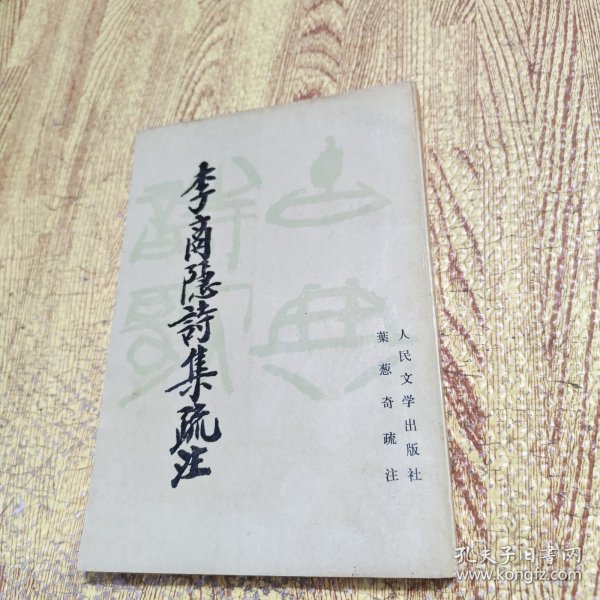 李商隱詩集疏注
人民文学出版社
葉葱奇疏注
孔夫子旧书网
www.kongfz.com